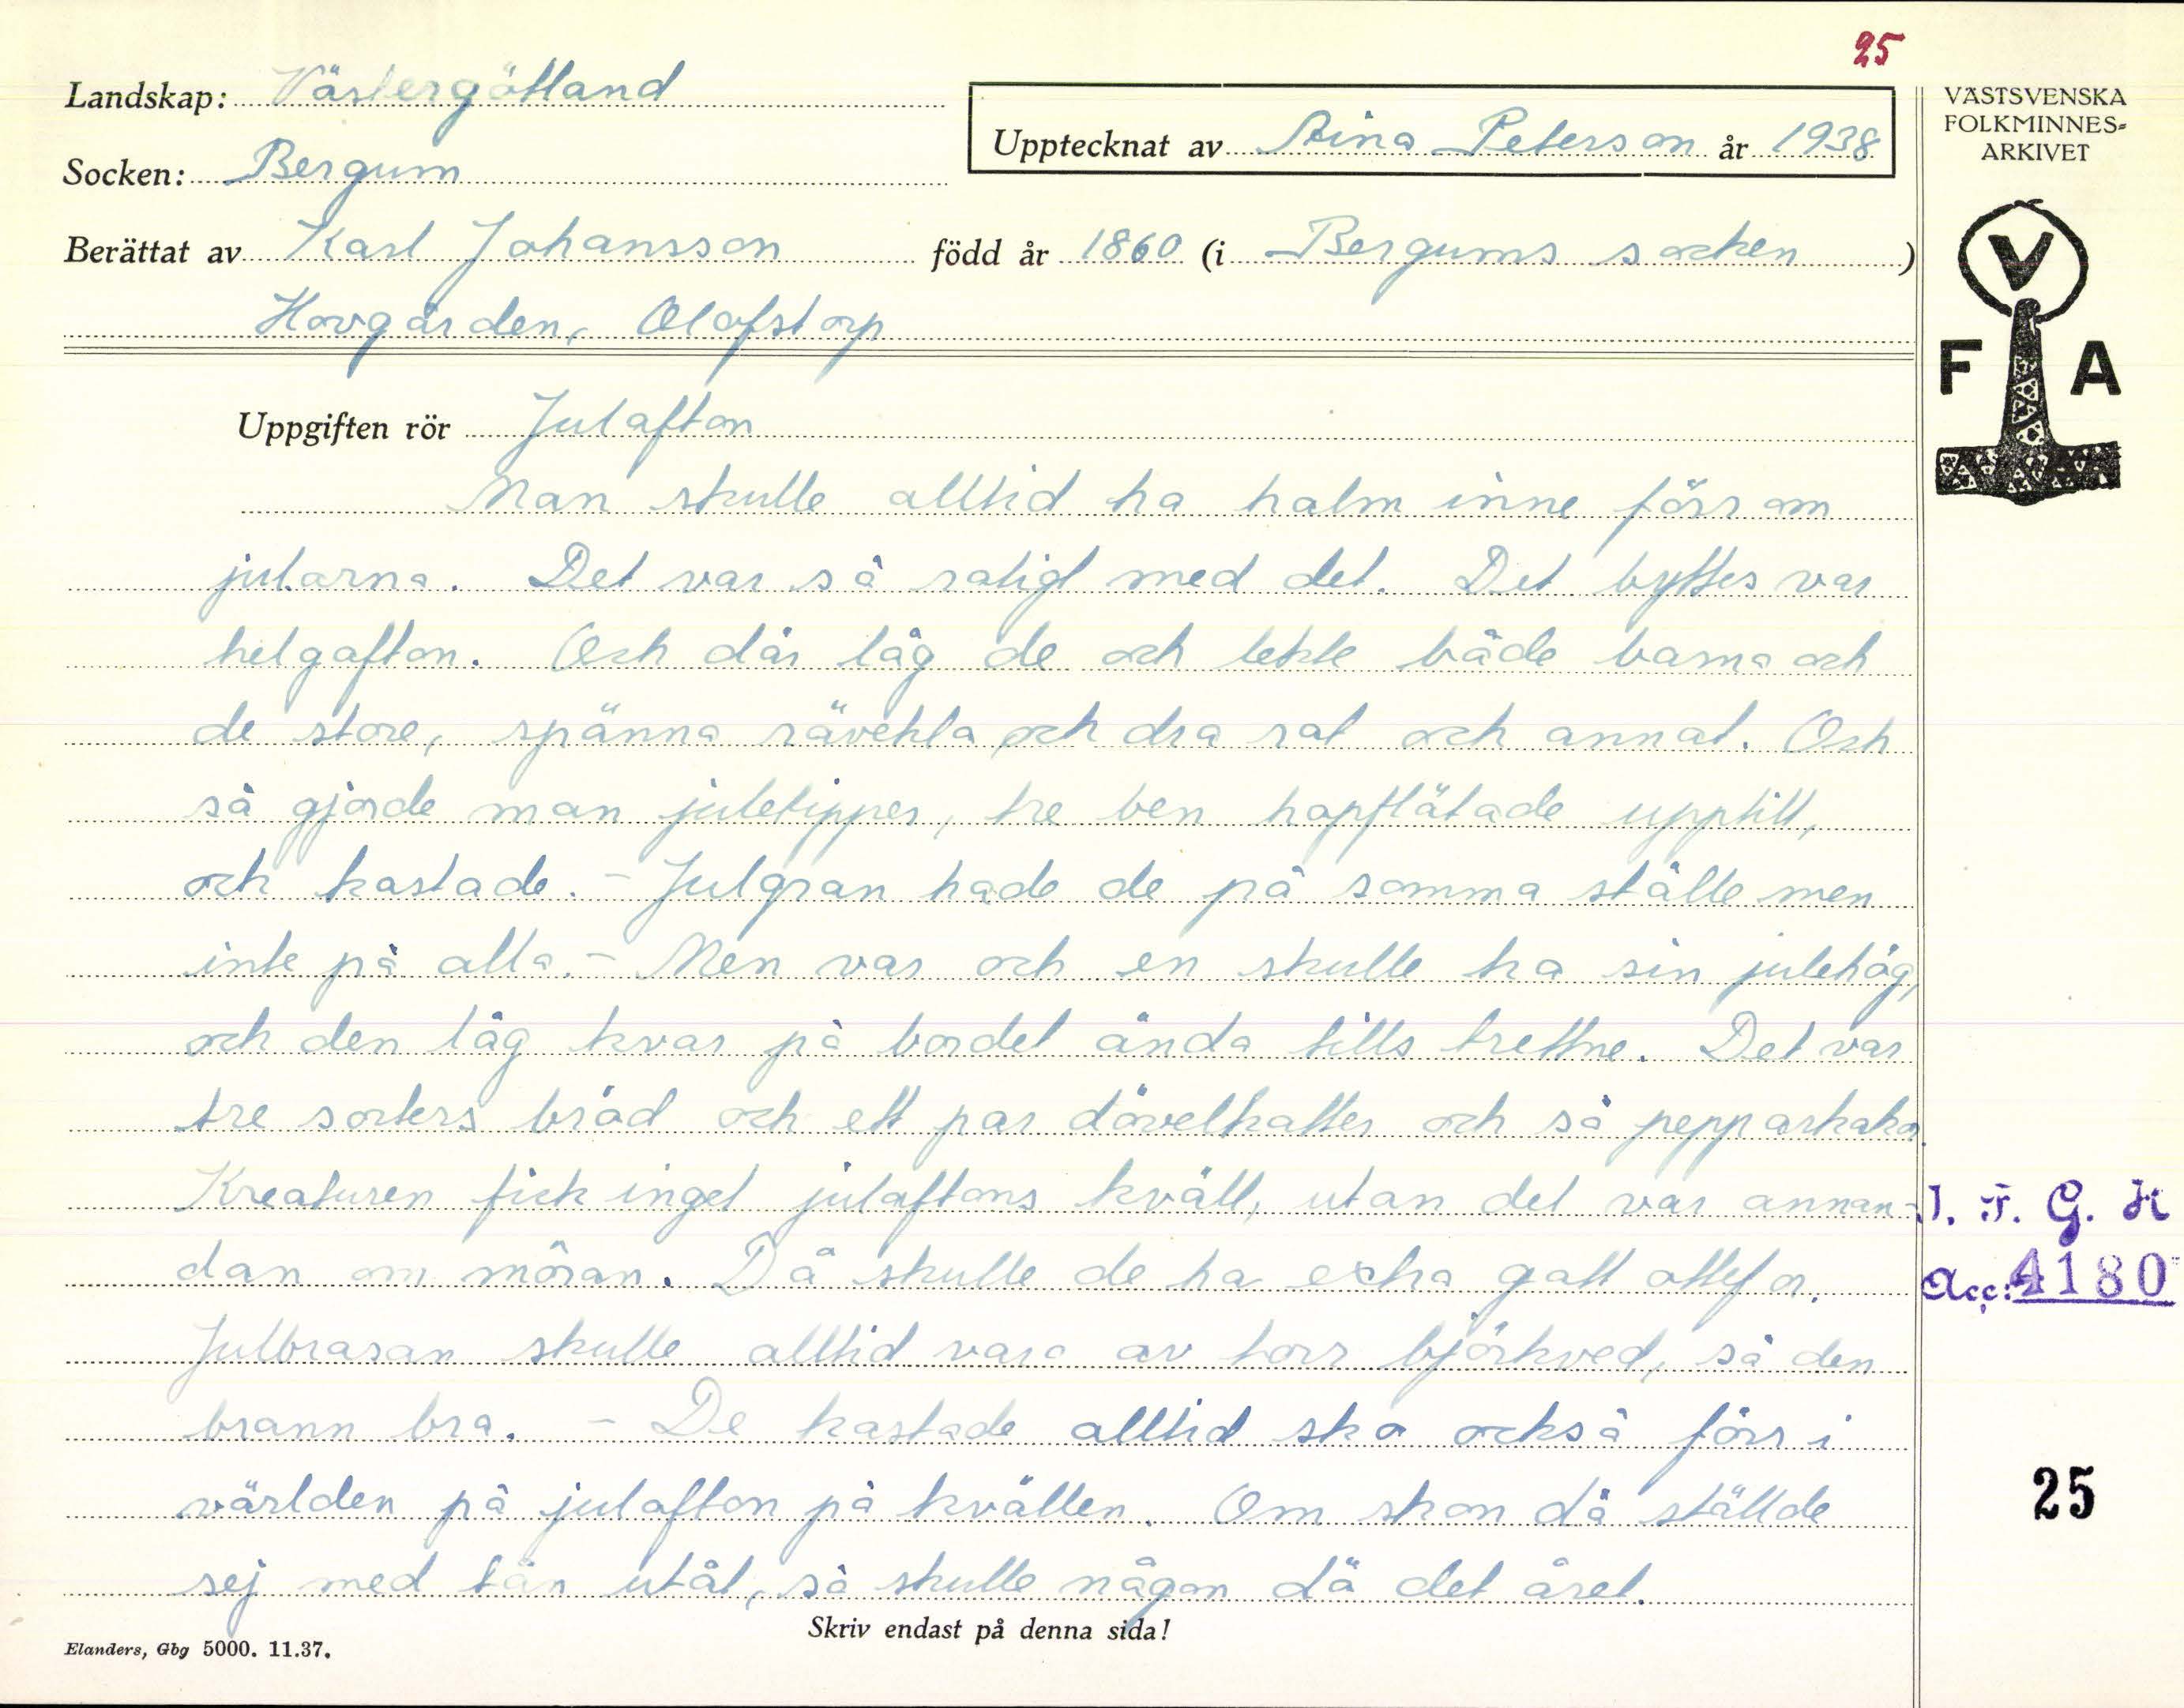 25
Landskap: Västergötland
Upptecknat av Aina Peterson år 1938
VÄSTSVENSKA
FOLKMINNES-
ARKIVET
Socken: Bergum
Berättat av Karl Johansson född år 1860 (i Bergums socken)
Hovgården, Olofstorp
V
F A
Uppgiften rör Julafton
Man skulle alltid ha halm inne förr om
jularna. Det var så roligt med det. Det byttes var
helgafton. Och där låg de och lekte både barna och
de store, spänna rävekla och dra rat och annat. Och
så gjorde man juletipper, tre ben hopflätade upptill,
och kastade. - Julgran hade de på somma ställe men
inte på alla. - Men var och en skulle ha sin julehög,
och den låg kvar på bordet ända tills trettne. Det var
tre sorters bröd och ett par dövelkatter och så pepparkakor.
Kreaturen fick inget julaftons kväll, utan det var annan-
dan om möran. Då skulle de ha extra gott ottefor.
Julbrasan skulle alltid vara av torr björkved, så den
brann bra. - De kastade alltid sko också förr i
världen på julafton på kvällen. Om skon då ställde
sej med tån utåt, så skulle någon dä det året.
I. F. G. H
Acc: 4180
25
Skriv endast på denna sida!
Elanders, Gbg 5000. 11.37.